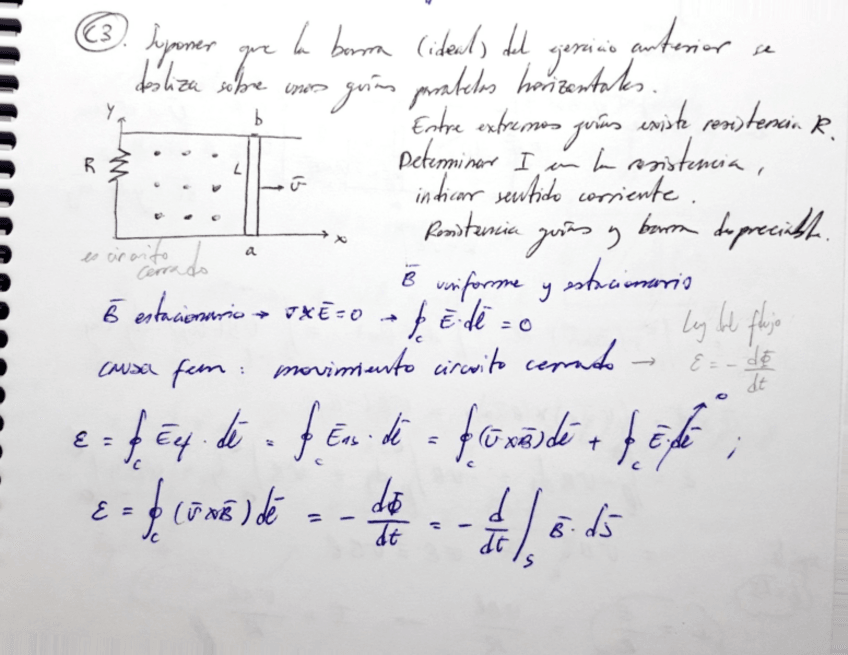 C3. Suponer que la barra (ideal) del ejercicio anterior se
desliza sobre unas guías paralelas horizontales.
Entre extremos guías existe resistencia R.
Determinar I en la resistencia,
indicar sentido corriente.
Resistencia guías y barra despreciable.
Y
b
R
L
v̄
x
a
es circuito
cerrado
B̄ uniforme y estacionario
B̄ estacionario → ∇×Ē=0 → ∮c Ē·dl̄ = 0
Ley del flujo
causa fem: movimiento circuito cerrado → ε = - dΦ/dt
ε = ∮c Ēef · dl̄ = ∮c Ēns · dl̄ = ∮c (v̄×B̄) dl̄ + ∮c Ē·dl̄ ↗ 0 ;
ε = ∮c (v̄×B̄) dl̄ = - dΦ/dt = - d/dt ∫s B̄ · ds̄